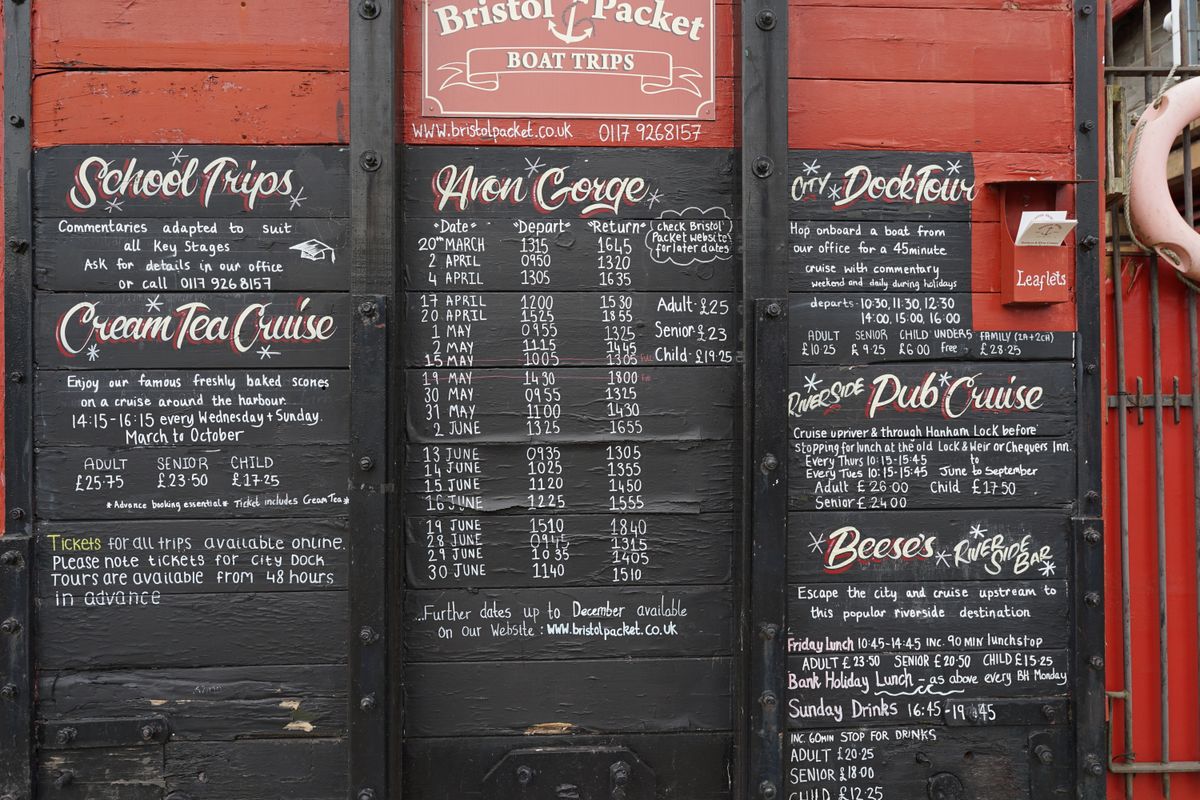 Bristol Packet
BOAT TRIPS
www.bristolpacket.co.uk 0117 9268157
School Trips
Commentaries adapted to suit
all Key Stages
Ask for details in our office
or call 0117 9268157
Cream Tea Cruise
Enjoy our famous freshly baked scones
on a cruise around the harbour.
14:15-16:15 every Wednesday + Sunday.
March to October
ADULT SENIOR CHILD
£25.75 £23.50 £17.25
*Advance booking essential* Ticket includes Cream Tea*
Tickets for all trips available online.
Please note tickets for City Dock
Tours are available from 48 hours
in advance
Avon Gorge
Date Depart Return
20TH MARCH 1315 1645
2 APRIL 0950 1320
4 APRIL 1305 1635
check Bristol
Packet website
for later dates
17 APRIL 1200 1530
20 APRIL 1525 1855
1 MAY 0955 1325
2 MAY 1115 1445
15 MAY 1005 1305 FULL
Adult £25
Senior £23
Child £19.25
19 MAY 1430 1800 Full
30 MAY 0955 1325
31 MAY 1100 1430
2 JUNE 1325 1655
13 JUNE 0935 1305
14 JUNE 1025 1355
15 JUNE 1120 1450
16 JUNE 1225 1555
19 JUNE 1510 1840
28 JUNE 0945 1315
29 JUNE 1035 1405
30 JUNE 1140 1510
...Further dates up to December available
on our Website : www.bristolpacket.co.uk
CITY Dock Tour
Hop onboard a boat from
our office for a 45minute
cruise with commentary
weekend and daily during holidays
departs 10:30, 11:30, 12:30
14:00, 15:00, 16:00
ADULT SENIOR CHILD UNDER 5 FAMILY (2A+2CH)
£10.25 £9.25 £6.00 Free £28.25
Leaflets
RIVERSIDE Pub Cruise
Cruise upriver & through Hanham Lock before
stopping for lunch at the old Lock & Weir or Chequers Inn.
Every Thurs 10:15-15:45 to
Every Tues 10:15-15:45 June to September
Adult £26.00 Child £17.50
Senior £24.00
Beese's RIVERSIDE BAR
Escape the city and cruise upstream to
this popular riverside destination
Friday lunch 10:45-14:45 INC. 90 MIN lunchstop
ADULT £23.50 SENIOR £20.50 CHILD £15.25
Bank Holiday Lunch - as above every BH Monday
Sunday Drinks 16:45-19:45
INC. 60MIN STOP FOR DRINKS
ADULT £20.25
SENIOR £18.00
CHILD £12.25